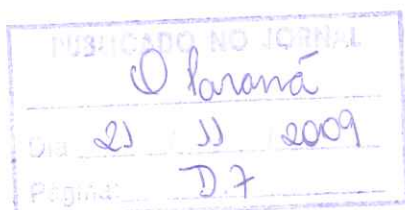 PUBLICADO NO JORNAL
O Paraná
Dia 21 / 11 / 2009
Página: D7